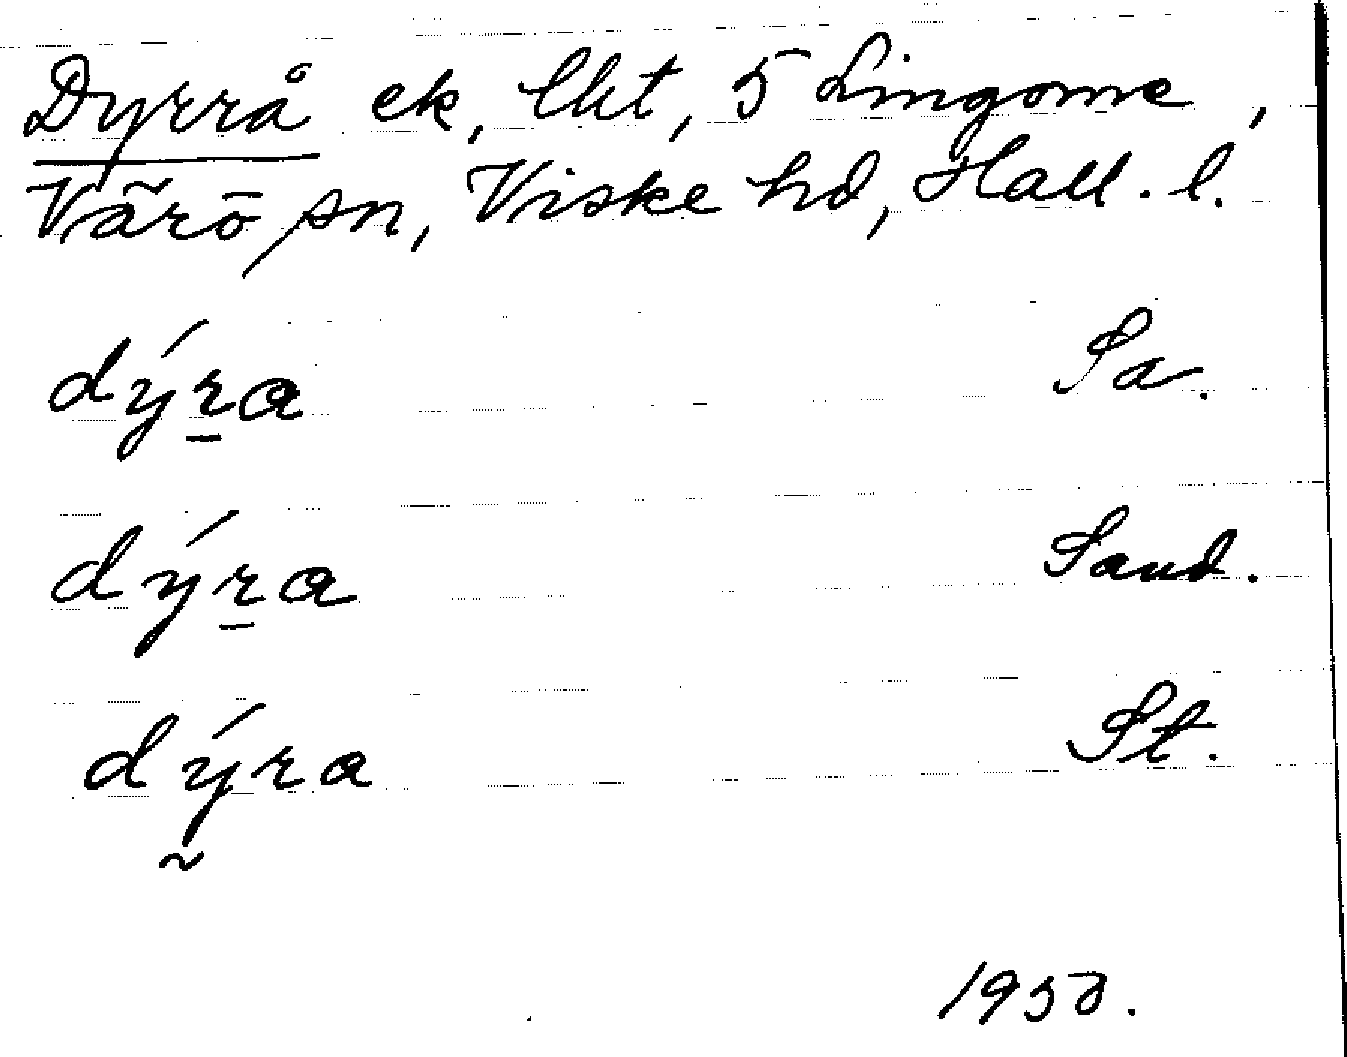 Dyrrå ek, lht, 5 Lingome,
Värö sn, Viske hd, Hall. l.
dýr̲a Sa.
dýr̲a Sand.
dý̰ra St.